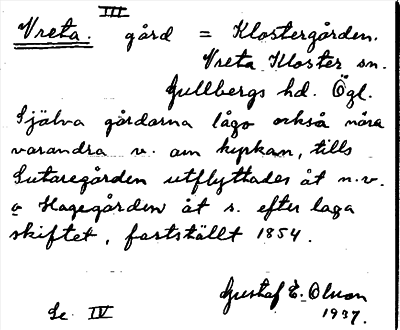 III
Vreta. gård = Klostergården.
Vreta Kloster sn.
Gullbergs hd. Ögl.
Själva gårdarna lågo också nära
varandra v. om kyrkan, tills
Sutaregården utflyttades åt n.v.
o Hagegården åt s. efter laga
skiftet, fastställt 1854.
Gustaf E. Olson
Se IV 1937.